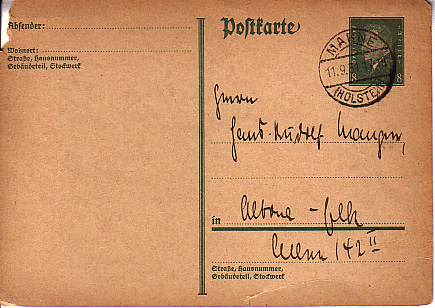 Absender:
Wohnort:
Straße, Hausnummer,
Gebäudeteil, Stockwerk
Postkarte
8 8
11.9.
(HOLSTEIN)
Herrn
Hans-Rudolf
in Altona -
142 II
Straße, Hausnummer,
Gebäudeteil, Stockwerk